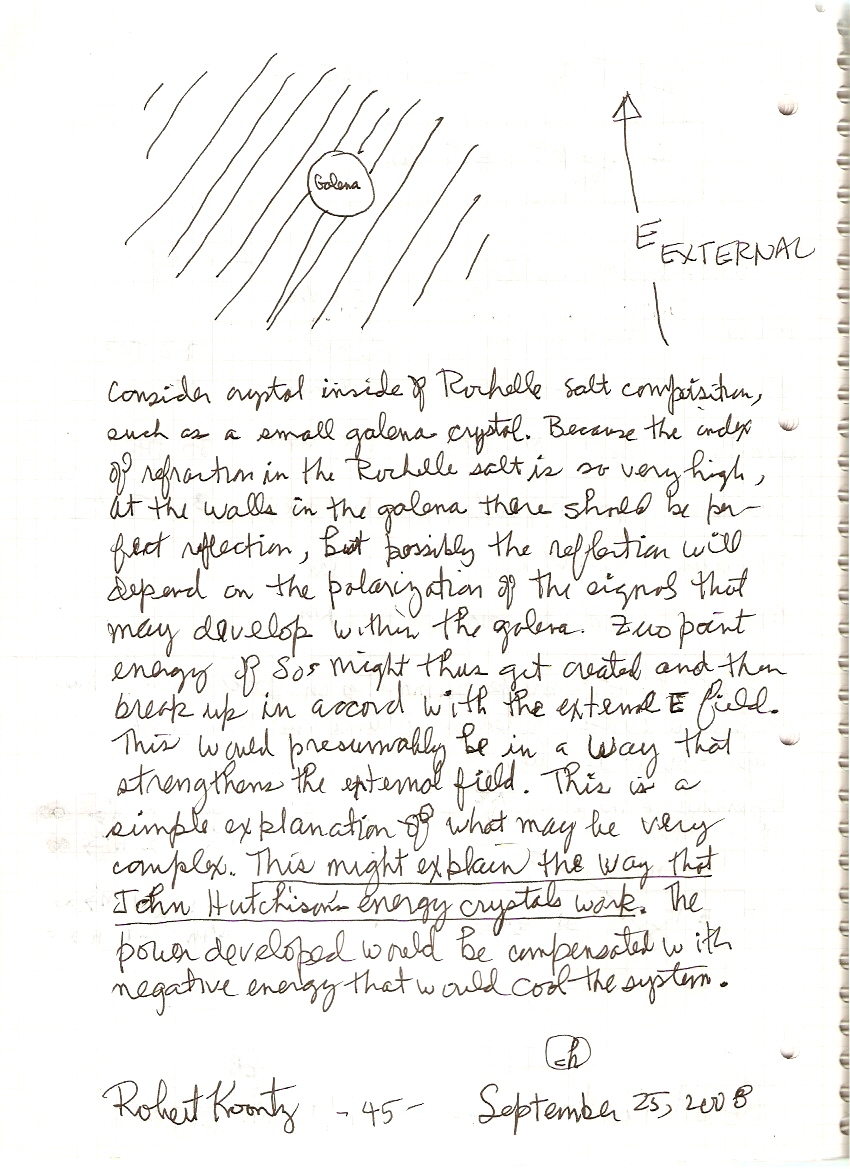 Galena
E EXTERNAL
Consider crystal inside of Rochelle salt composition,
such as a small galena crystal. Because the index
of refraction in the Rochelle salt is so very high,
at the walls in the galena there should be per-
fect reflection, but possibly the reflection will
depend on the polarization of the signal that
may develop within the galena. Zero point
energy of sos might thus get created and then
break up in accord with the external E field.
This would presumably be in a way that
strengthens the external field. This is a
simple explanation of what may be very
complex. This might explain the way that
John Hutchison's energy crystals work. The
power developed would be compensated with
negative energy that would cool the system.
Robert Koontz - 45 - September 25, 2008